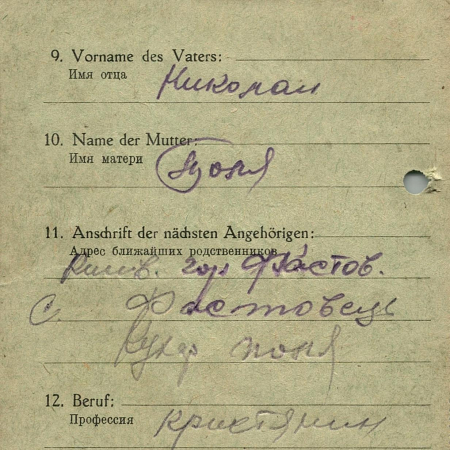 9. Vorname des Vaters:
Имя отца
Николай
10. Name der Mutter:
Имя матери
Поля
11. Anschrift der nächsten Angehörigen:
Адрес ближайших родственников
гор Фастов.
с. Фастовець
12. Beruf:
Профессия
Кристянин